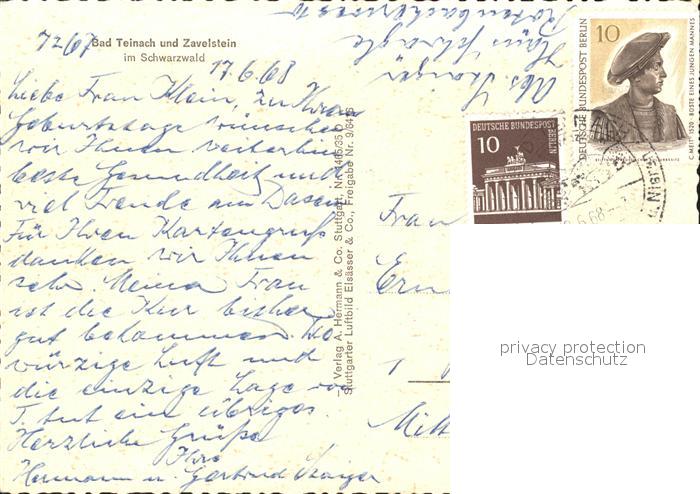 72/67
Bad Teinach und Zavelstein
im Schwarzwald
17.6.68
Liebe Frau Klein, zu Ihrem
Geburtstage wünschen
wir Ihnen weiterhin
beste Gesundheit und
viel Freude am Dasein
Für Ihren Kartengruß
danken wir Ihnen
sehr. Meiner Frau
ist die Kur bisher
gut bekommen. Die
würzige Luft und
die einzige Lage von
T. tut ein übriges.
Herzliche Grüße
Ihre
Hermann u. Gertrud
Abs.
— Verlag A. Hermann & Co. Stuttgart, Nr.
Stuttgarter Luftbild Elsässer & Co., Freigabe Nr.
DEUTSCHE BUNDESPOST
BERLIN
10
10
DEUTSCHE BUNDESPOST BERLIN
BÜSTE EINES JUNGEN MANNES
Frau
Ern
1
Mitt
privacy protection
Datenschutz